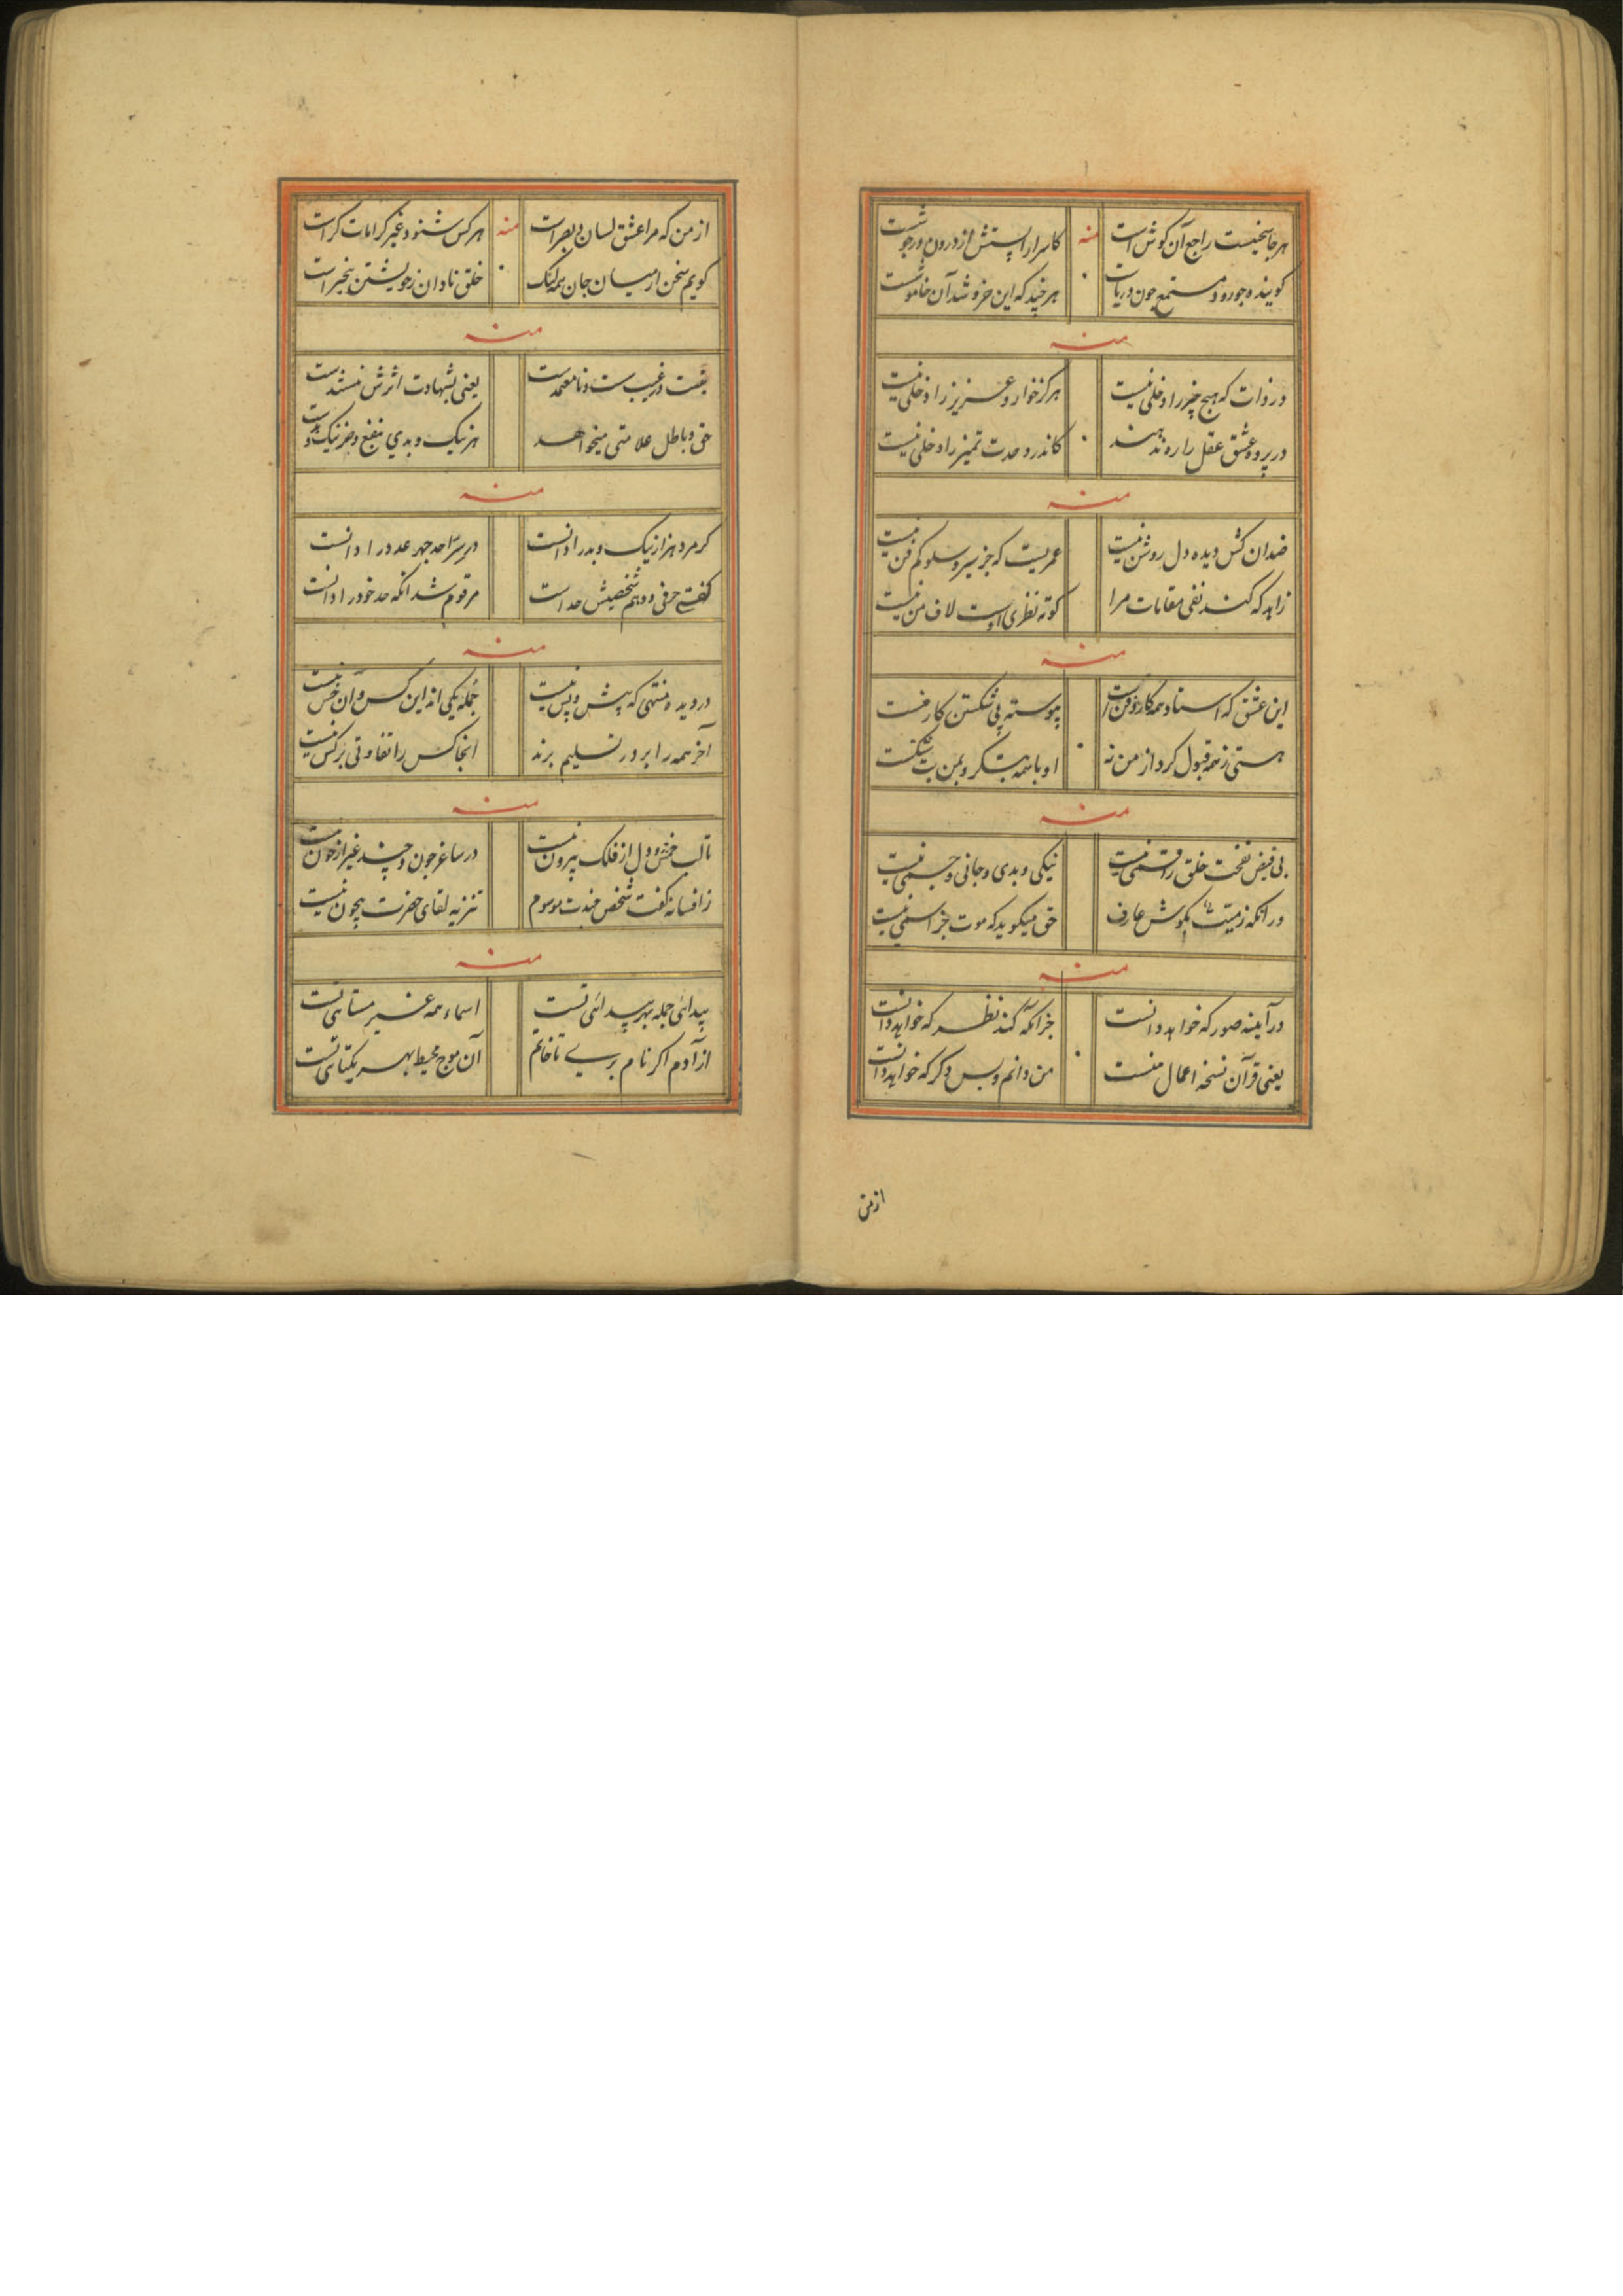 هر جا سخنیست راجع آن گوش است
منه
کاسرار الستش از درون در جوشست
گوینده چو رود و مستمع چون دریاست
هر چند که این خروشد آن خاموشست
منه
در ذات که هیچ چیز را دخلی نیست
هرگز خوار و عزیز را دخلی نیست
در پرده عشق عقل را ره ندهند
کاندر وحدت تمیز را دخلی نیست
منه
ضدان کش دیده دل روشن نیست
عمریست که جز سیر و سلوکم فن نیست
زاهد که کند نفی مقامات مرا
کوته نظری اوست لاف من نیست
منه
این عشق که استاد همه کار و فن است
پیوسته پی شکستن کار منست
هستی ز همه قبول کرد از من نه
او با همه بتگر و بمن بت شکنست
منه
بی فیض نفخت خلق را قسمی نیست
نیکی و بدی و جانی و جسمی نیست
در انکه زمیّت بگوش عارف
حق میگوید که موت جز اسمی نیست
منه
در آینه صور که خواهد دانست
جز آنکه کند نظر که خواهد دانست
یعنی قرآن نسخه اعمال منست
من دانم و بس دگر که خواهد دانست
از من
از من که مرا عشق لسان و بصر است
منه
هر کس شنود غیر کرامات کر است
گویم سخن از میان جان همه لیک
خلق نادان ز خویشتن بیخبر است
منه
در غیب است و نامعتمد است
یعنی بشهادت اثرش مستند است
حق و باطل علامتی میخواهد
هر نیک و بدی بنفع و ضر نیک و بد است
منه
گر مرد هزار نیک و بد را دانست
در سرّ احد جهر عدد را دانست
گفتی حرفی و وهم شخصیش حد است
مرقوم شد انکه حد خود را دانست
منه
در دیده منتهی که پیش و پس نیست
جمله یکی اند این کس و آن خس نیست
آخر همه را بر در تسلیم برند
انجا کس را تفاوتی بر کس نیست
منه
تا لب خمش و دل از فلک بیرون نیست
در ساغر چون و چند غیر از خون نیست
زافسانه گفت شخص موسوم
تنزیه لقای حضرت بیچون نیست
منه
پیدائی جمله بهر پیدائی تست
اسماء همه عنبر مسائی تست
از آدم اگر نام بری تا خاتم
آن موج محیط بهر یکتائی تست